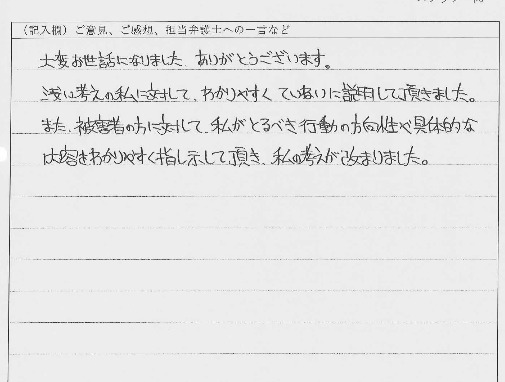 （記入欄）ご意見、ご感想、担当弁護士への一言など
大変お世話になりました。ありがとうございます。
浅い考えの私に対して、わかりやすくていねいに説明して頂きました。
また、被害者の方に対して、私がとるべき行動の方向性や具体的な
内容をわかりやすく指し示して頂き、私の考えが改まりました。